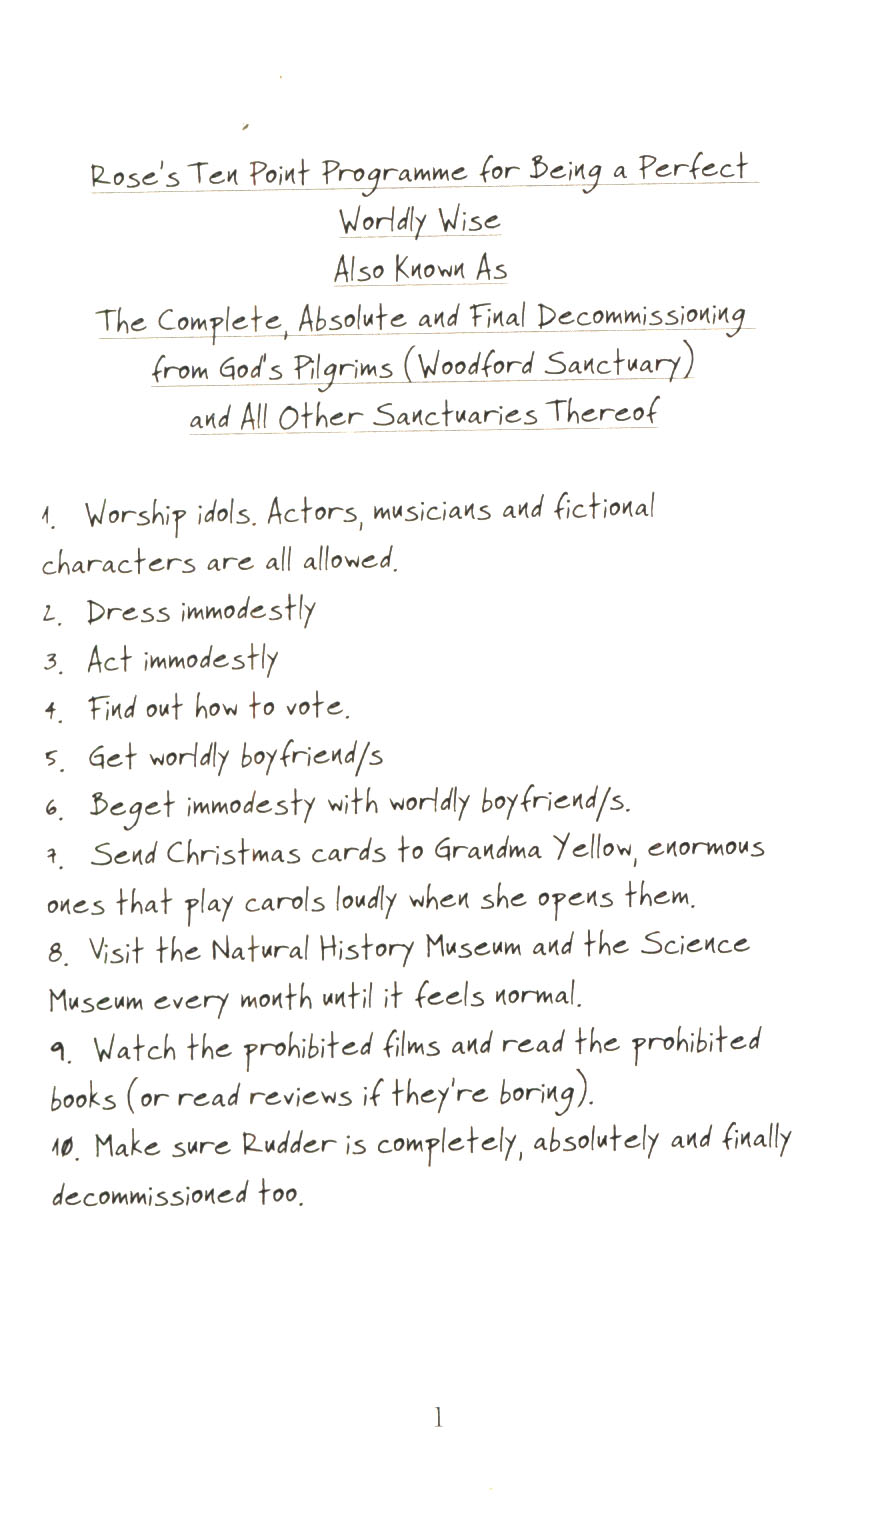 Rose's Ten Point Programme for Being a Perfect
Worldly Wise
Also Known As
The Complete, Absolute and Final Decommissioning
from God's Pilgrims (Woodford Sanctuary)
and All Other Sanctuaries Thereof
1. Worship idols. Actors, musicians and fictional
characters are all allowed.
2. Dress immodestly
3. Act immodestly
4. Find out how to vote.
5. Get worldly boyfriend/s
6. Beget immodesty with worldly boyfriend/s.
7. Send Christmas cards to Grandma Yellow, enormous
ones that play carols loudly when she opens them.
8. Visit the Natural History Museum and the Science
Museum every month until it feels normal.
9. Watch the prohibited films and read the prohibited
books (or read reviews if they're boring).
10. Make sure Rudder is completely, absolutely and finally
decommissioned too.
1